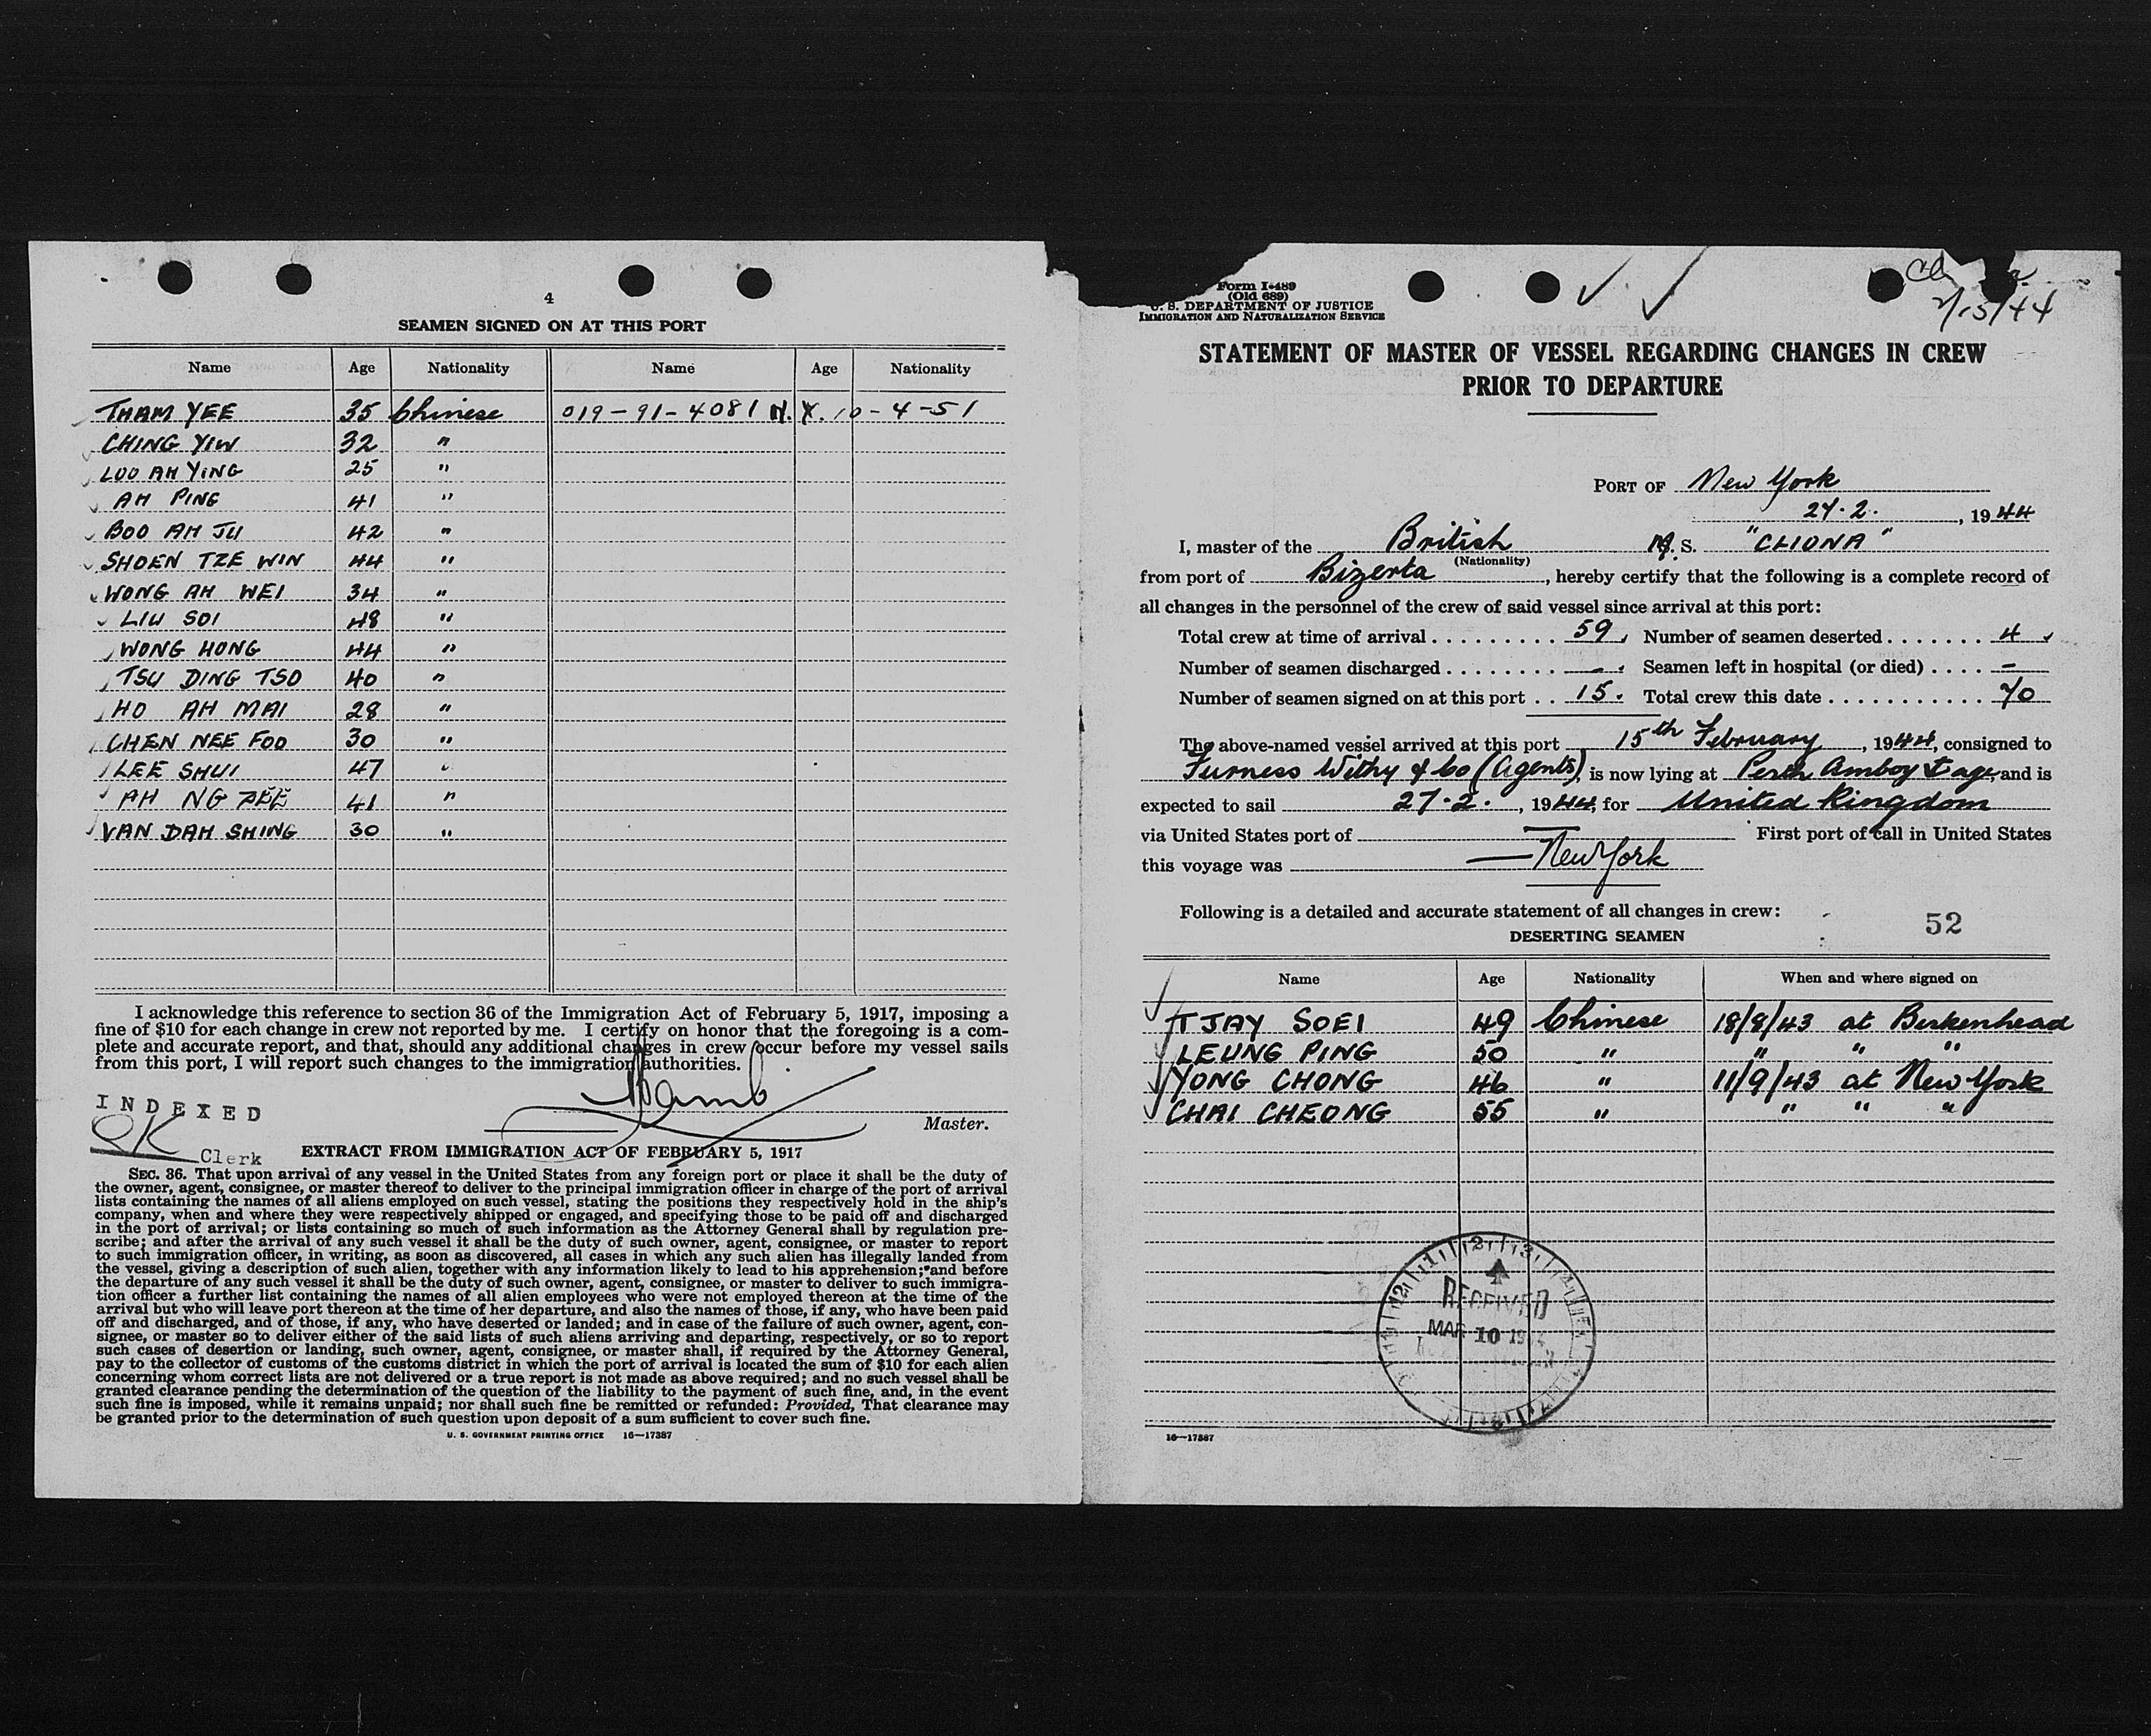 4
SEAMEN SIGNED ON AT THIS PORT
Name Age Nationality Name Age Nationality
THAM YEE 35 Chinese 019-91-4081 N.Y. 10-4-51
CHING YIW 32 "
LUO AH YING 25 "
AH PING 41 "
BOO AH JU 42 "
SHOEN TZE WIN 44 "
WONG AH WEI 34 "
LIU SOI 48 "
WONG HONG 44 "
TSU DING TSO 40 "
HO AH MAI 28 "
CHEN NEE FOO 30 "
LEE SHUI 47 "
AH NG ZEE 41 "
VAN DAH SHING 30 "
I acknowledge this reference to section 36 of the Immigration Act of February 5, 1917, imposing a
fine of $10 for each change in crew not reported by me. I certify on honor that the foregoing is a com-
plete and accurate report, and that, should any additional changes in crew occur before my vessel sails
from this port, I will report such changes to the immigration authorities.
INDEXED
Master.
Clerk
EXTRACT FROM IMMIGRATION ACT OF FEBRUARY 5, 1917
SEC. 36. That upon arrival of any vessel in the United States from any foreign port or place it shall be the duty of
the owner, agent, consignee, or master thereof to deliver to the principal immigration officer in charge of the port of arrival
lists containing the names of all aliens employed on such vessel, stating the positions they respectively hold in the ship's
company, when and where they were respectively shipped or engaged, and specifying those to be paid off and discharged
in the port of arrival; or lists containing so much of such information as the Attorney General shall by regulation pre-
scribe; and after the arrival of any such vessel it shall be the duty of such owner, agent, consignee, or master to report
to such immigration officer, in writing, as soon as discovered, all cases in which any such alien has illegally landed from
the vessel, giving a description of such alien, together with any information likely to lead to his apprehension; and before
the departure of any such vessel it shall be the duty of such owner, agent, consignee, or master to deliver to such immigra-
tion officer a further list containing the names of all alien employees who were not employed thereon at the time of the
arrival but who will leave port thereon at the time of her departure, and also the names of those, if any, who have been paid
off and discharged, and of those, if any, who have deserted or landed; and in case of the failure of such owner, agent, con-
signee, or master so to deliver either of the said lists of such aliens arriving and departing, respectively, or so to report
such cases of desertion or landing, such owner, agent, consignee, or master shall, if required by the Attorney General,
pay to the collector of customs of the customs district in which the port of arrival is located the sum of $10 for each alien
concerning whom correct lists are not delivered or a true report is not made as above required; and no such vessel shall be
granted clearance pending the determination of the question of the liability to the payment of such fine, and, in the event
such fine is imposed, while it remains unpaid; nor shall such fine be remitted or refunded: Provided, That clearance may
be granted prior to the determination of such question upon deposit of a sum sufficient to cover such fine.
U. S. GOVERNMENT PRINTING OFFICE 16—17387
Form I-489
(Old 689)
U. S. DEPARTMENT OF JUSTICE
IMMIGRATION AND NATURALIZATION SERVICE
2/15/44
STATEMENT OF MASTER OF VESSEL REGARDING CHANGES IN CREW
PRIOR TO DEPARTURE
PORT OF New York
27.2., 1944
I, master of the British M. S. "CLIONA"
(Nationality)
from port of Bizerta, hereby certify that the following is a complete record of
all changes in the personnel of the crew of said vessel since arrival at this port:
Total crew at time of arrival 59. Number of seamen deserted 4
Number of seamen discharged —. Seamen left in hospital (or died) —
Number of seamen signed on at this port 15. Total crew this date 70
The above-named vessel arrived at this port 15th February, 1944, consigned to
Furness Withy & Co (Agents), is now lying at Perth Amboy and is
expected to sail 27.2., 1944, for United Kingdom
via United States port of — First port of call in United States
this voyage was — New York
Following is a detailed and accurate statement of all changes in crew:
52
DESERTING SEAMEN
Name Age Nationality When and where signed on
TJAY SOEI 49 Chinese 18/8/43 at Birkenhead
LEUNG PING 50 " " " "
YONG CHONG 46 " 11/9/43 at New York
CHAI CHEONG 55 " " " "
RECEIVED
MAR 10
16—17387